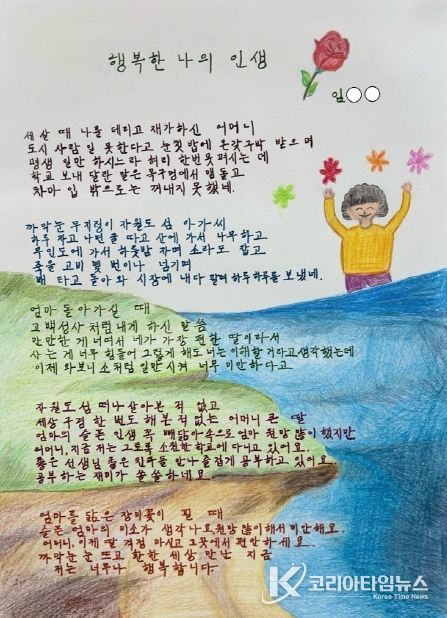 행복한 나의 인생
임○○
세살 때 나를 데리고 재가하신 어머니
도시 사람 일 못한다고 눈칫밥에 온갖구박 받으며
평생 일만 하시느라 허리 한번 못펴시는 데
학교 보내 달란 말은 목구멍에서 맴돌고
차마 입 밖으로는 꺼내지 못했네.
까막눈 무지렁이 자월도 섬 아가씨
하루 자고 나면 굴 따고 산에 가서 나무하고
무인도에 가서 하룻밤 자며 소라도 잡고
죽을 고비 몇 번이나 넘기며
배 타고 돌아와 시장에 내다 팔며 하루하루를 보냈네.
엄마 돌아가실 때
고백성사처럼 내게 하신 말씀
만만한 게 너여서 네가 가장 편한 딸이라서
사는 게 너무 힘들어 그렇게 해도 너는 이해할 거라고 생각했는데
이제 와보니 소처럼 일만 시켜 너무 미안하다고
자월도 섬 떠나 살아본 적 없고
세상 구경 한 번도 해본 적 없는 어머니 큰 딸
엄마의 슬픈 인생 꼭 빼닮아 속으로 엄마 원망 많이 했지만
어머니, 지금 저는 그토록 소원한 학교에 다니고 있어요.
좋은 선생님 좋은 친구를 만나 즐겁게 공부하고 있어요.
공부하는 재미가 쏠쏠하네요.
엄마를 닮은 장미꽃이 필 때
슬픈 엄마의 미소가 생각나요. 원망 많이해서 미안해요.
어머니, 이제 딸 걱정 마시고 그곳에서 편안하세요.
까막눈 뜨고 환한 세상 만난 지금
저는 너무나 행복합니다.
코리아타임뉴스
Korea Time News